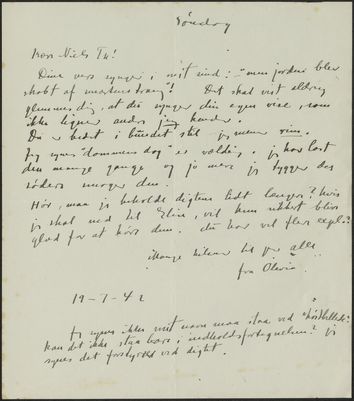 Søndag
Kære Niels
Dine vers synger i mit sind: "men jorden blev
skabt af . Det skal vist aldrig
glemmes dig, at du synger din egen vise, som
ikke ligner andre jeg kender.
Du er bedst i bundet stil jeg mener rim.
Jeg synes "dommens dag" er vældig. jeg har læst
den mange gange og jo mere jeg tygger des
sødere smager den.
Hør, maa jeg beholde digtene lidt længer? hvis
jeg skal ned til Elise, vil hun sikkert blive
glad for at høre dem. du har vel flere expl.?
Mange hilsner til jer alle
fra Olivia.
19-7-42
Jeg synes ikke mit navn maa staa ved
kan det ikke staa bare i indholdsfortegnelsen? jeg
synes det forstyrrer ved digtet.